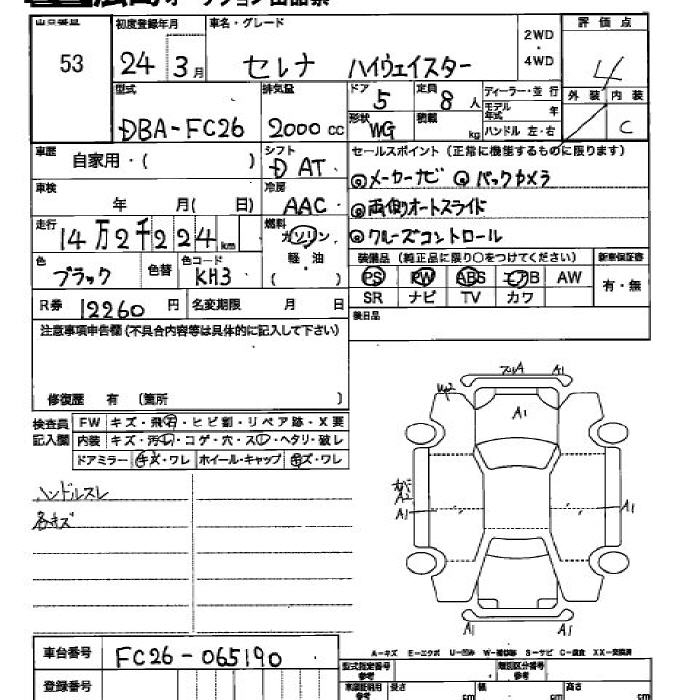 出品番号 初度登録年月 車名・グレード 2WD・4WD 評価点
53 24 3月 セレナ ハイウェイスター 4
型式 排気量 ドア 5 定員 8人 ディーラー・並行 外装 内装
DBA-FC26 2000cc 形状 WG 積載 kg モデル年式 年 ハンドル 左・右 C
車歴 自家用・( ) シフト D AT セールスポイント(正常に機能するものに限ります)
◎メーカーナビ ◎バックカメラ
車検 年 月( 日) 冷房 AAC ◎両側オートスライド
走行 14万2千224km 燃料 ガソリン ◎クルーズコントロール
軽・油 ( )
色 ブラック 色替 色コード KH3 装備品(純正品に限り○をつけてください) 新車保証書
PS PW ABS エアB AW 有・無
R券 12260円 名変期限 月 日 SR ナビ TV カワ
注意事項申告欄(不具合内容等は具体的に記入して下さい) 後日品
修復歴 有 (箇所 )
検査員記入欄 FW キズ・飛石・ヒビ割・リペア跡・X要
内装 キズ・汚れ・コゲ・穴・スレ・ヘタリ・破レ
ドアミラー キズ・ワレ ホイール・キャップ キズ・ワレ
ハンドルスレ
各キズ
A1
A1
A2
A1 A1
A1 A1
A-キズ E-エクボ U-凹み W-補修跡 S-サビ C-腐食 XX-交換済
車台番号 FC26-065190
型式指定番号 参考 類別区分番号 参考
登録番号 長さ cm 幅 cm 高さ cm